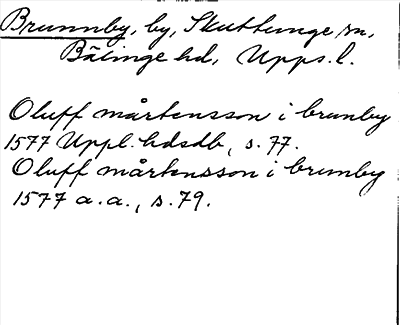 Brunnby, by, Skuttunge sn,
Bälinge hd, Upps. l.
Oluff mårtensson i brunby
1577 Uppl. hdsdb, s. 77.
Oluff mårtensson i brunby
1577 a.a., s. 79.